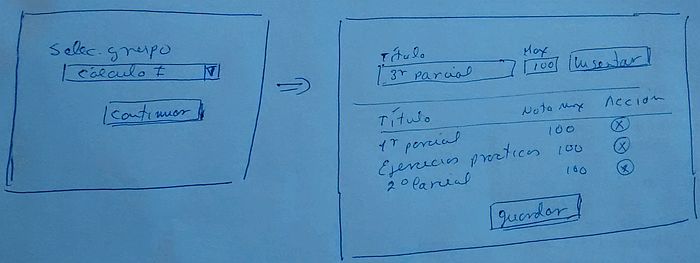 Selec. grupo
Cálculo I
Continuar
Título
Max
3r parcial
100
Insertar
Título
Nota max
Acción
1r parcial
100
Ejercicios practicos
100
2º Parcial
100
guardar